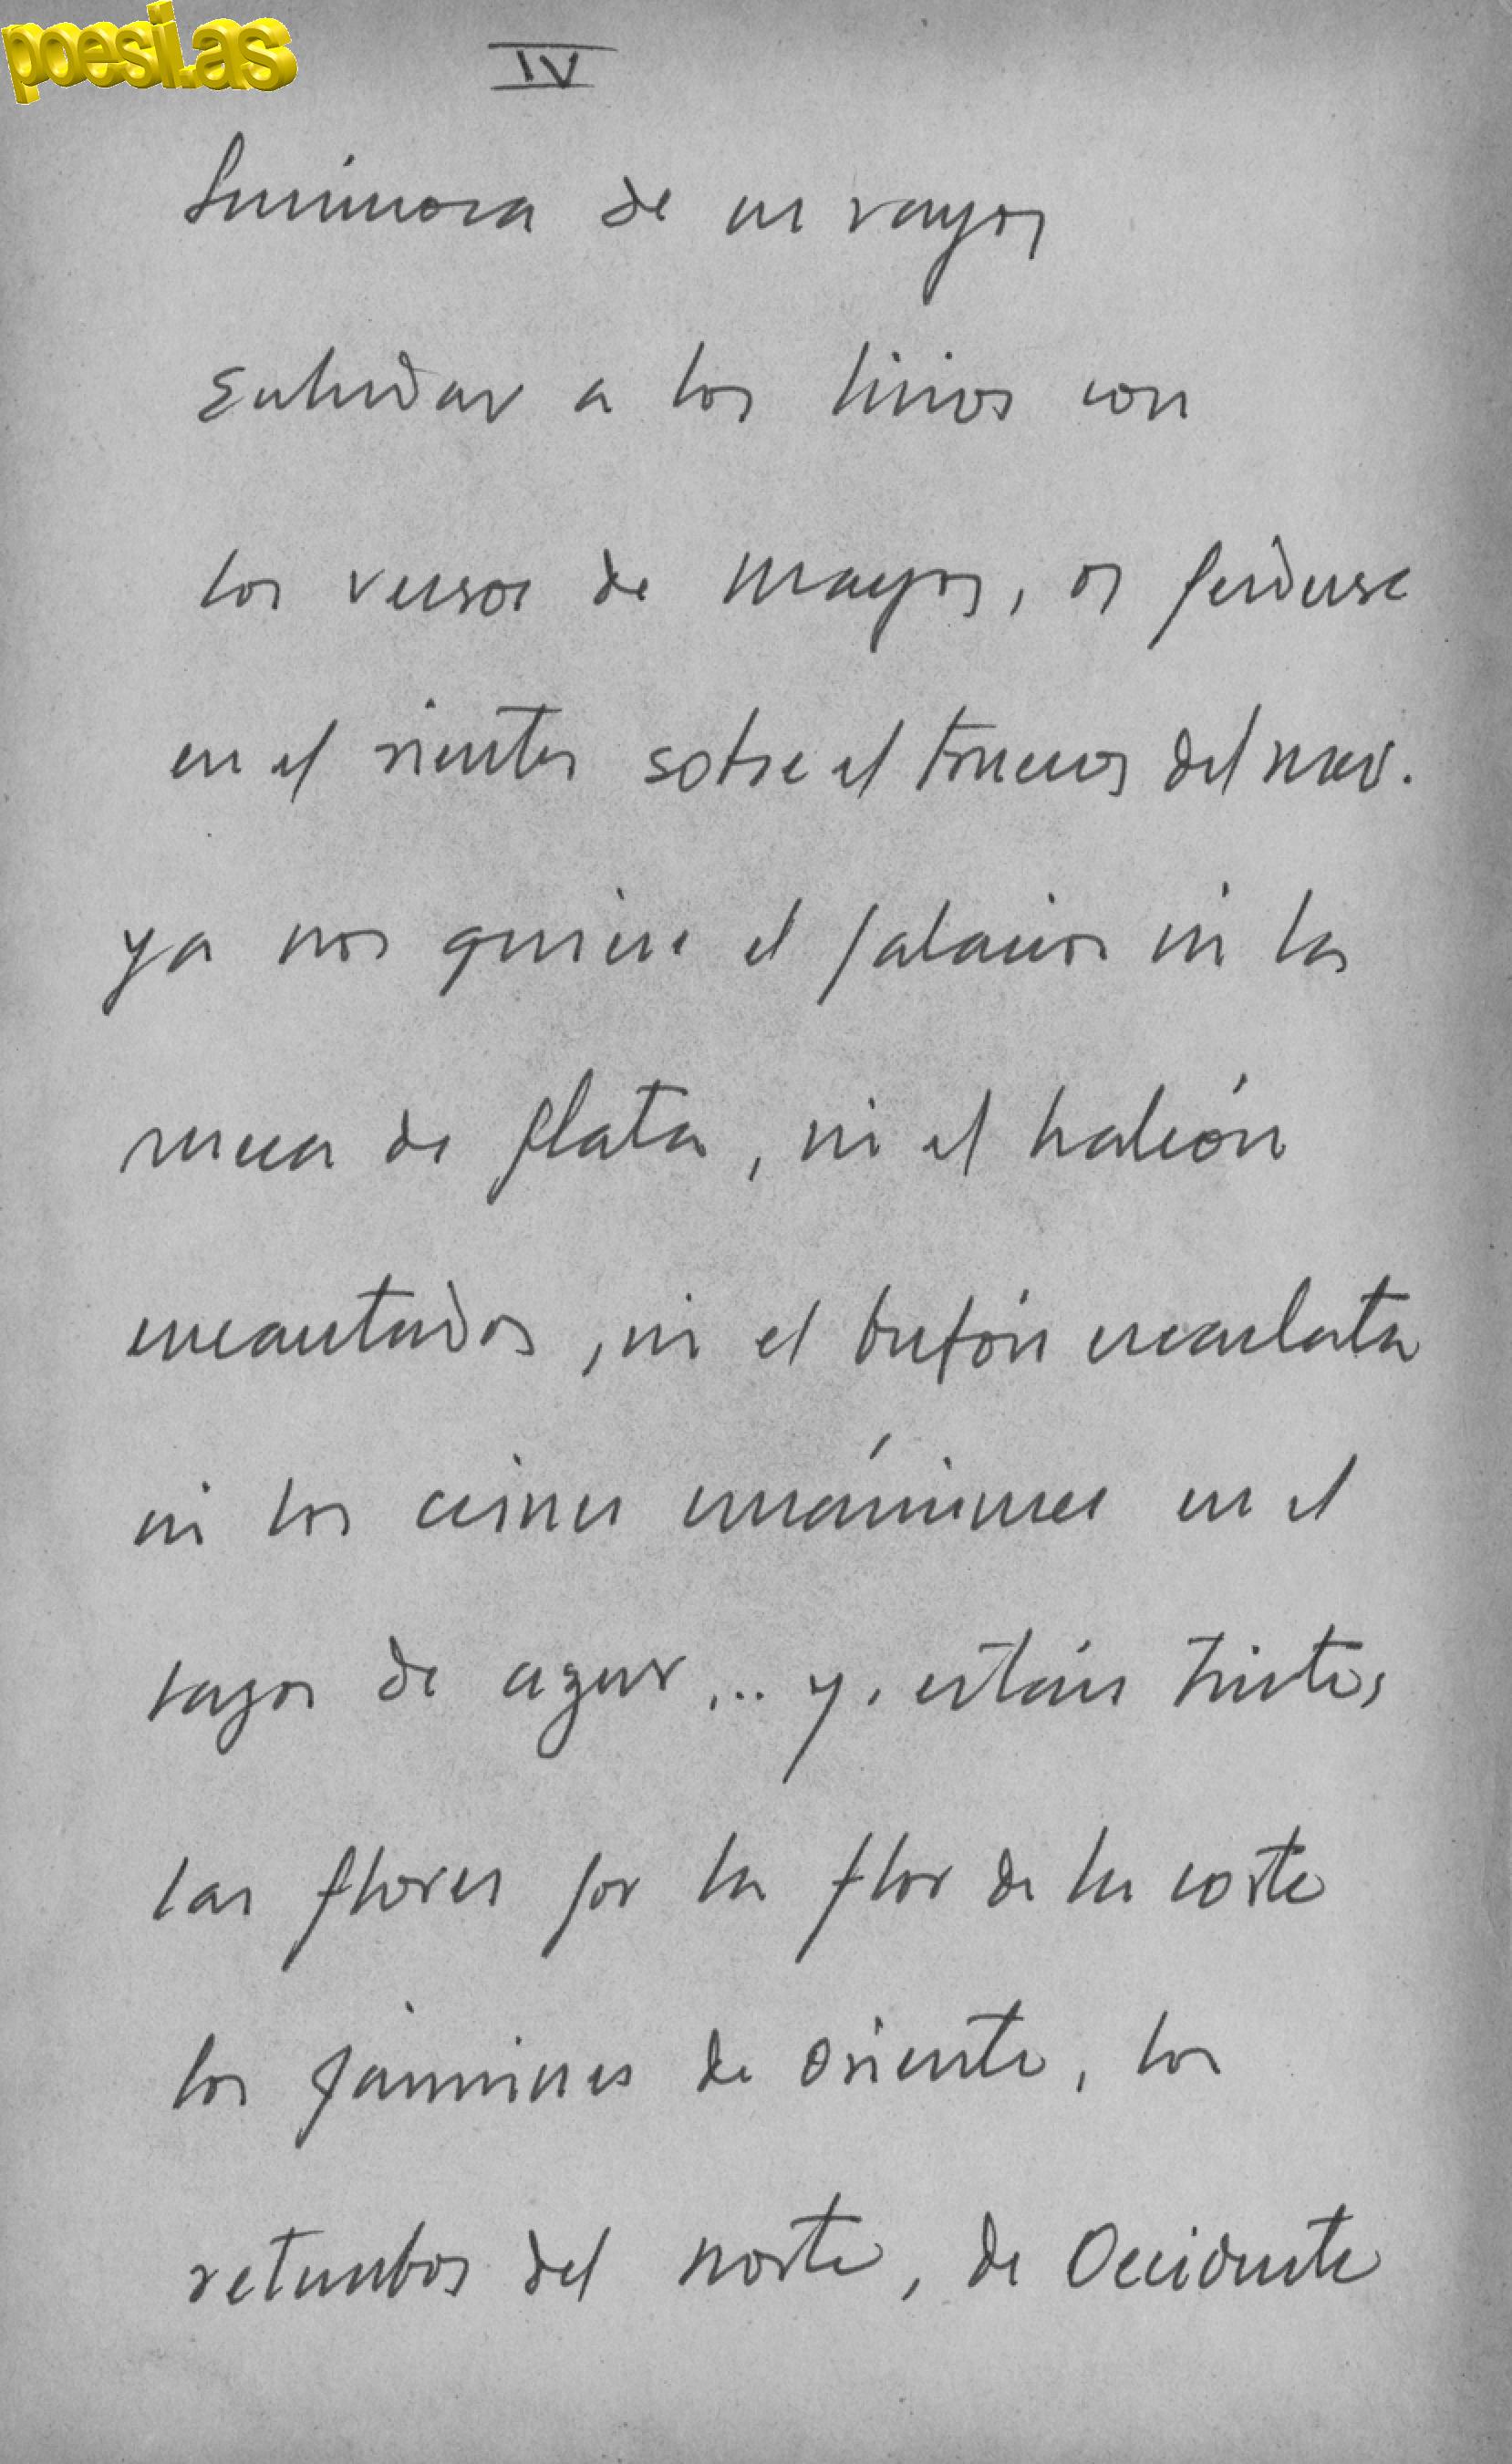 poesi.as
IV
Luminosa de un rayo
saludar a los lirios con
los versos de mayo, o perderse
en el viento sobre el trueno del mar.
ya no quiere el palacio ni la
rueca de plata, ni el halcón
encantado, ni el bufón escarlata
ni los cisnes unánimes en el
lago de azur... y, están tristes
las flores por la flor de la corte
los jazmines de oriente, los
retumbos del norte, de Occidente